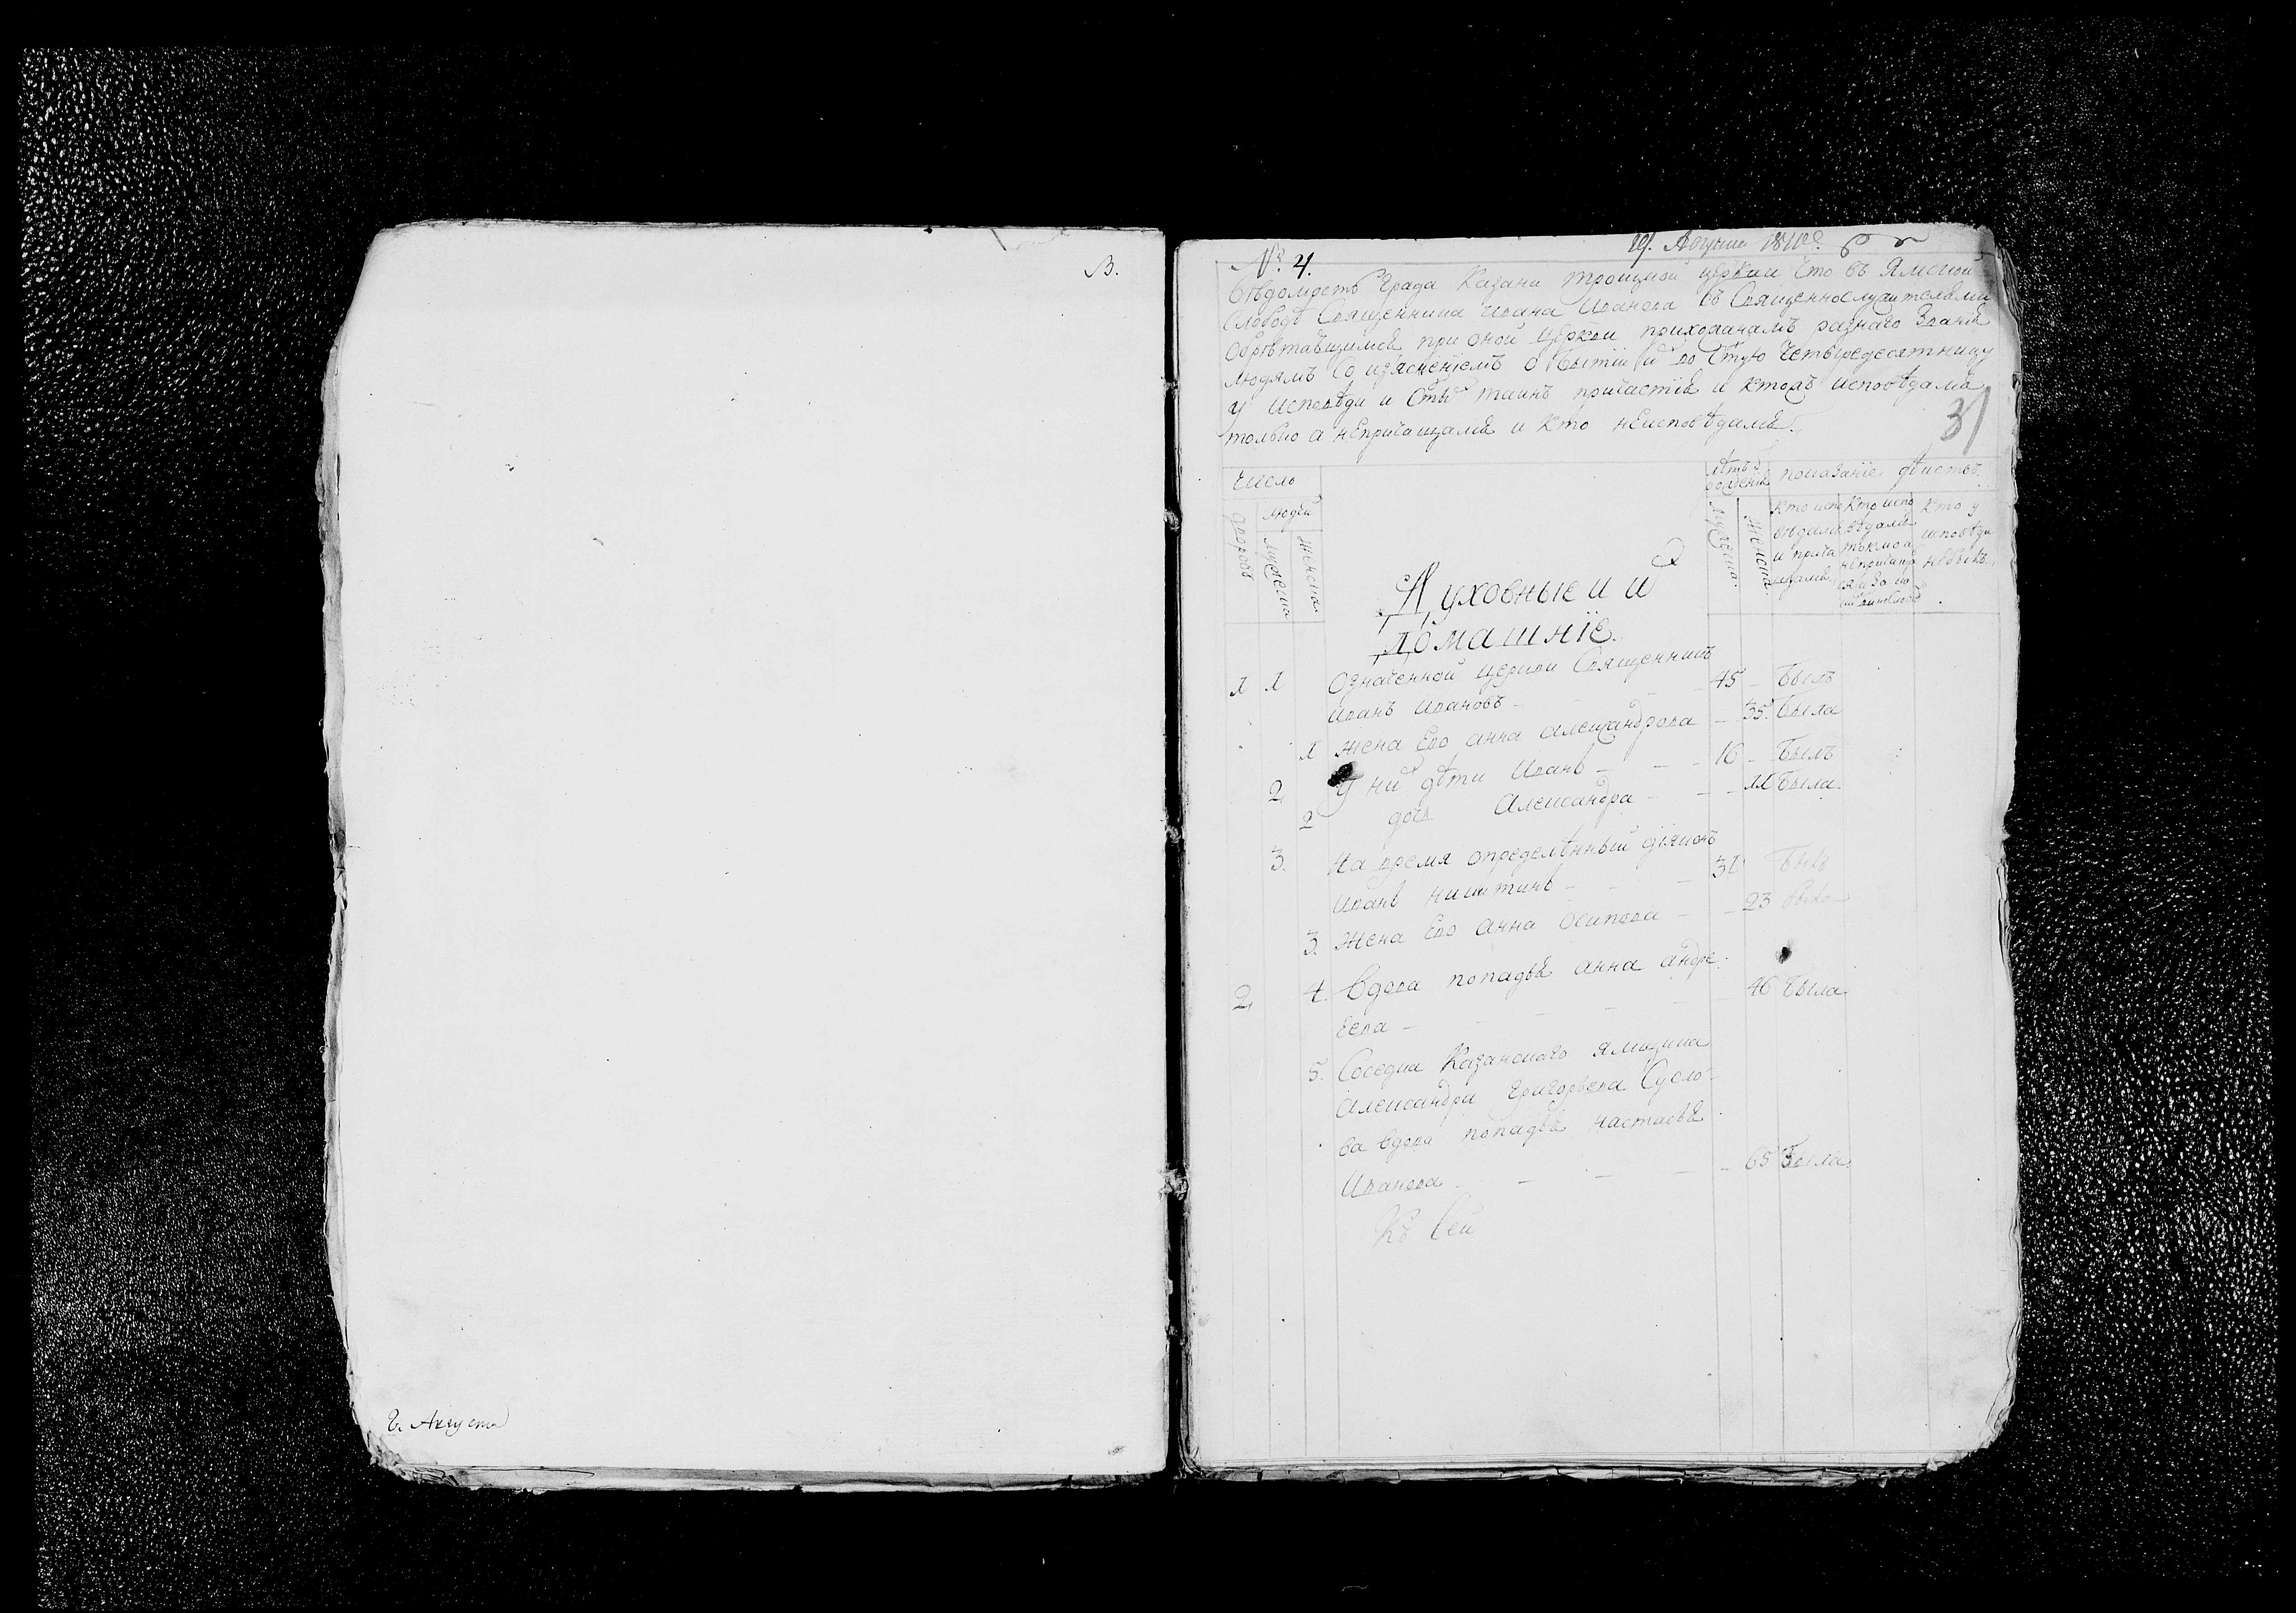 В.
Августа
№ 4.
19. Августа
Вѣдомость Града Казани Троицкой церкви что въ Ямской
Слободѣ Священника Ивана Иванова съ Священнослужителями
Обрѣтающимся при оной церкви прихожанамъ разнаго званія
людямъ со изъясненіемъ о бытіи ихъ во с҃тую четыредесятницу
у исповѣди и с҃тыхъ таинъ причастія и ктожъ исповѣдался
только а непричащался и кто неисповѣдался.
31
Число
лѣтъ рожденія
показаніе дѣйствъ.
дворовъ
людей
мужеска
женска.
мужеска.
женска.
Кто исповѣдался и причащался.
Кто исповѣдался токмо а непричащ
Кто у исповѣди небылъ.
Духовные и ихъ
домашніе.
1 1 Означенной церкви Священникъ
Иванъ Ивановъ - - - 45 - былъ
1 жена Ево анна александрова - 35. была
2 У нихъ дѣти Иванъ - - - 16 - былъ
2 дочь Александра - - - 11 была.
3. На время определѣнный діяконъ
Иванъ Никитинъ - - былъ
3. жена Ево анна Осипова - - 23 была
2 4. Вдова попадья анна андре-
ева - - - - - 46 была
5. Соседка Казанскаго ямщика
Александра Григорьева Сусло-
ва вдова попадья настасья
Иванова - - - - 65 была.
Къ сей